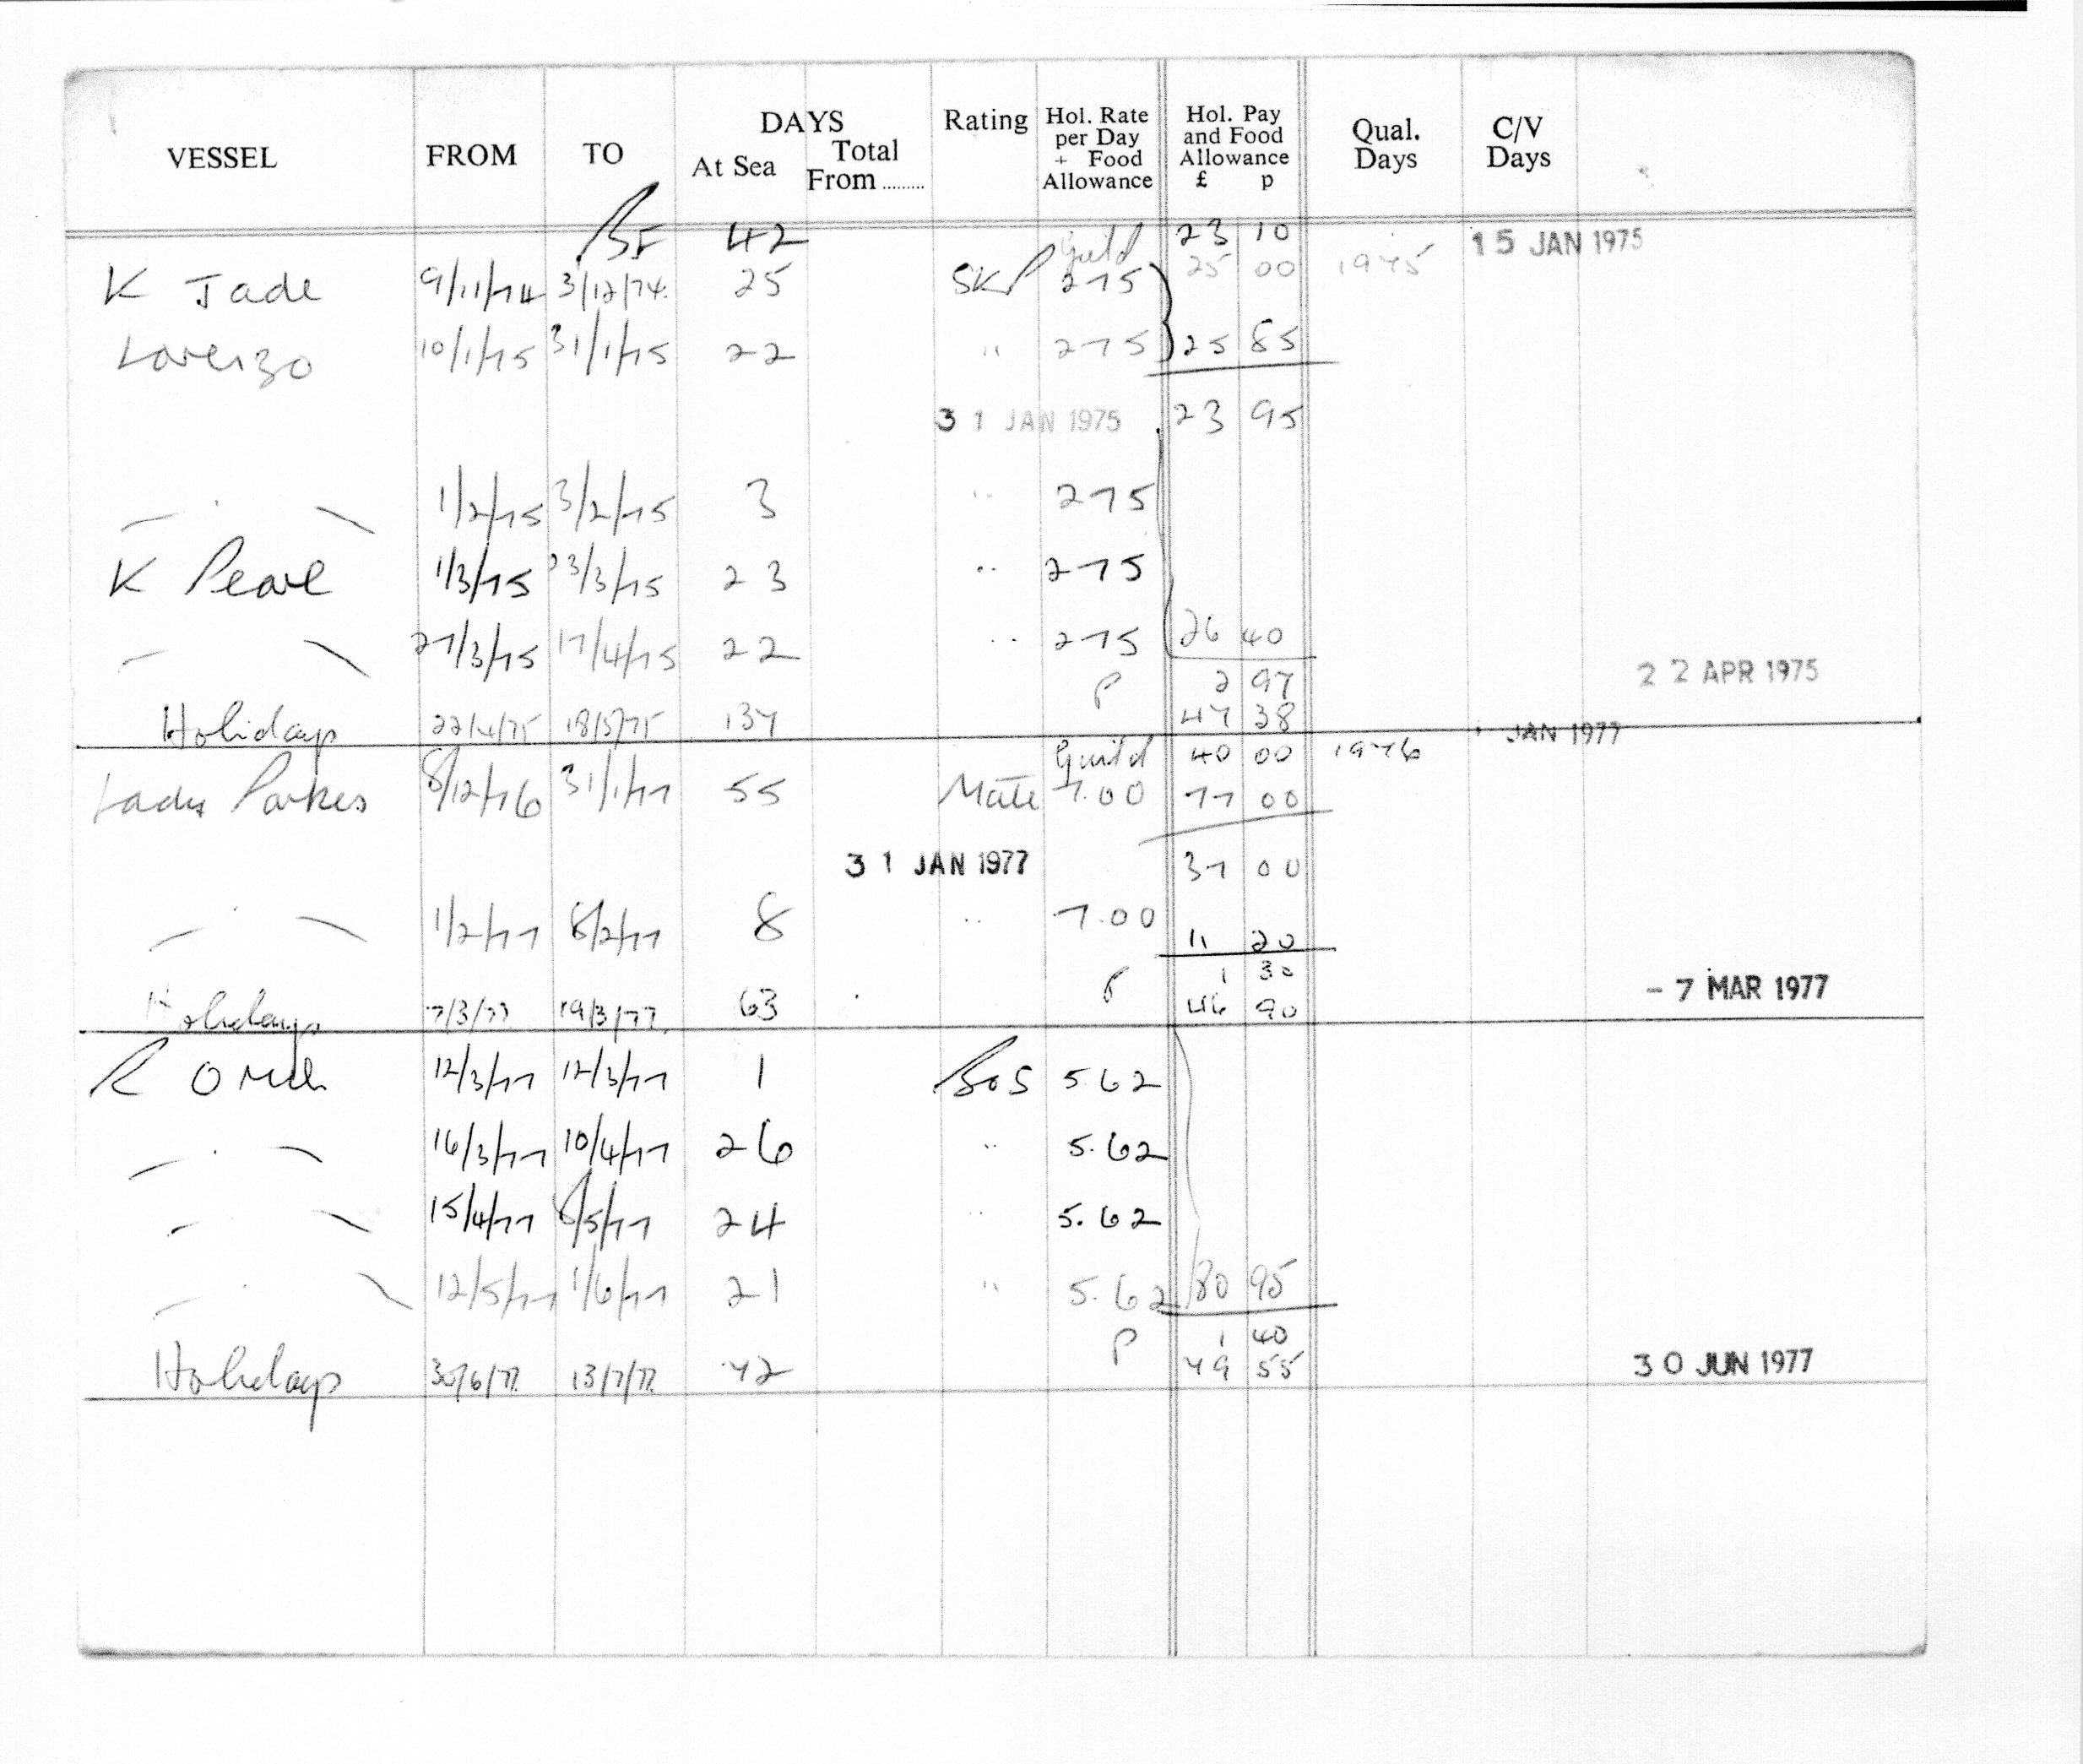 VESSEL FROM TO DAYS At Sea Total From ......... Rating Hol. Rate per Day + Food Allowance Hol. Pay and Food Allowance £ p Qual. Days C/V Days
BF 42 23 10
Guild 25 00 1975 15 JAN 1975
K Jade 9/11/74 3/12/74 25 SKP 275
Lorenzo 10/1/75 31/1/75 22 " 275 25 85
31 JAN 1975 23 95
— " — 1/2/75 3/2/75 3 " 275
K Pearl 1/3/75 23/3/75 23 " 275
— " — 27/3/75 17/4/75 22 " 275 26 40
P 2 97 22 APR 1975
Holidays 22/4/75 18/5/75 137 47 38
Guild 40 00 1976 JAN 1977
Lady Parkes 8/12/76 31/1/77 55 Mate 7.00 77 00
31 JAN 1977 37 00
— " — 1/2/77 8/2/77 8 " 7.00 11 20
P 1 30
Holidays 7/3/77 19/3/77 63 46 90 - 7 MAR 1977
R Orich 12/3/77 12/3/77 1 BoS 5.62
— " — 16/3/77 10/4/77 26 " 5.62
— " — 15/4/77 8/5/77 24 " 5.62
— " — 12/5/77 1/6/77 21 " 5.62 80 95
P 1 40
Holidays 30/6/77 13/7/77 72 79 55 30 JUN 1977